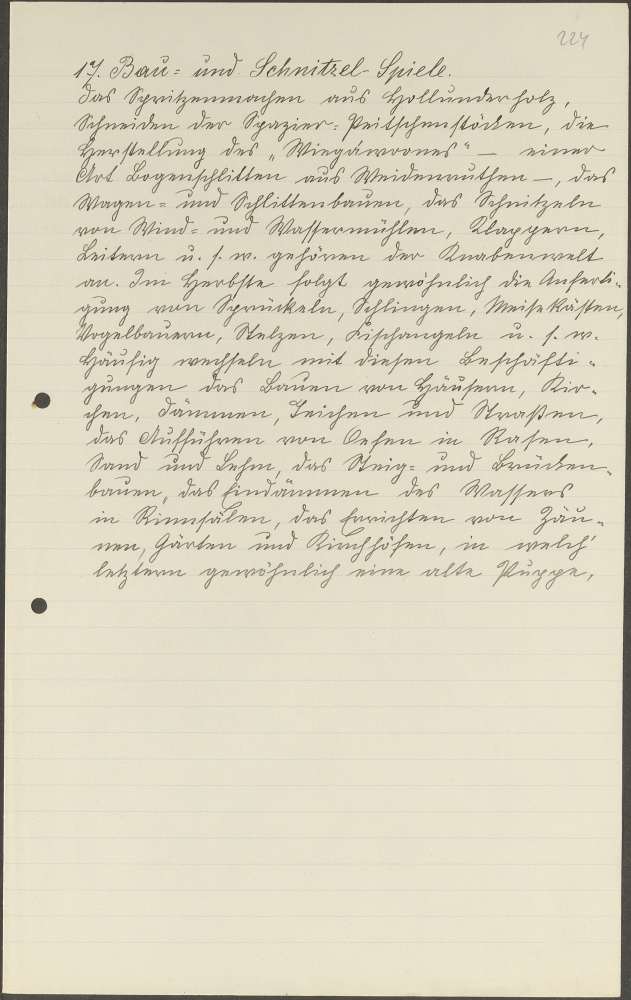 224
17. Bau= und Schnitzel-Spiele.
Das Spritzenmachen aus Hollunderholz,
Schneiden der Spazier=Peitschenstöcken, die
Herstellung des „Wiegáwoones“ — einer
Art Bogenschlitten aus Weidenruthen —, das
Wagen= und Schlittenbauen, das Schnitzeln
von Wind= und Wassermühlen, Klappern,
Leitern u. s. w. gehören der Knabenwelt
an. Im Herbste folgt gewöhnlich die Anferti=
gung von Sprückeln, Schlingen, Meisekästen,
Vogelbauern, Stelzen, Fischangeln u. s. w.
Häufig wechseln mit diesen Beschäfti=
gungen das Bauen von Häusern, Kir=
chen, Dämmen, Teichen und Straßen,
das Aufführen von Oefen in Rasen,
Sand und Lehm, das Steig= und Brücken=
bauen, das Eindämmen des Wassers
in Rinnsälen, das Errichten von Zäu=
nen, Gärten und Kirchhöfen, in welch'
letztern gewöhnlich eine alte Puppe,